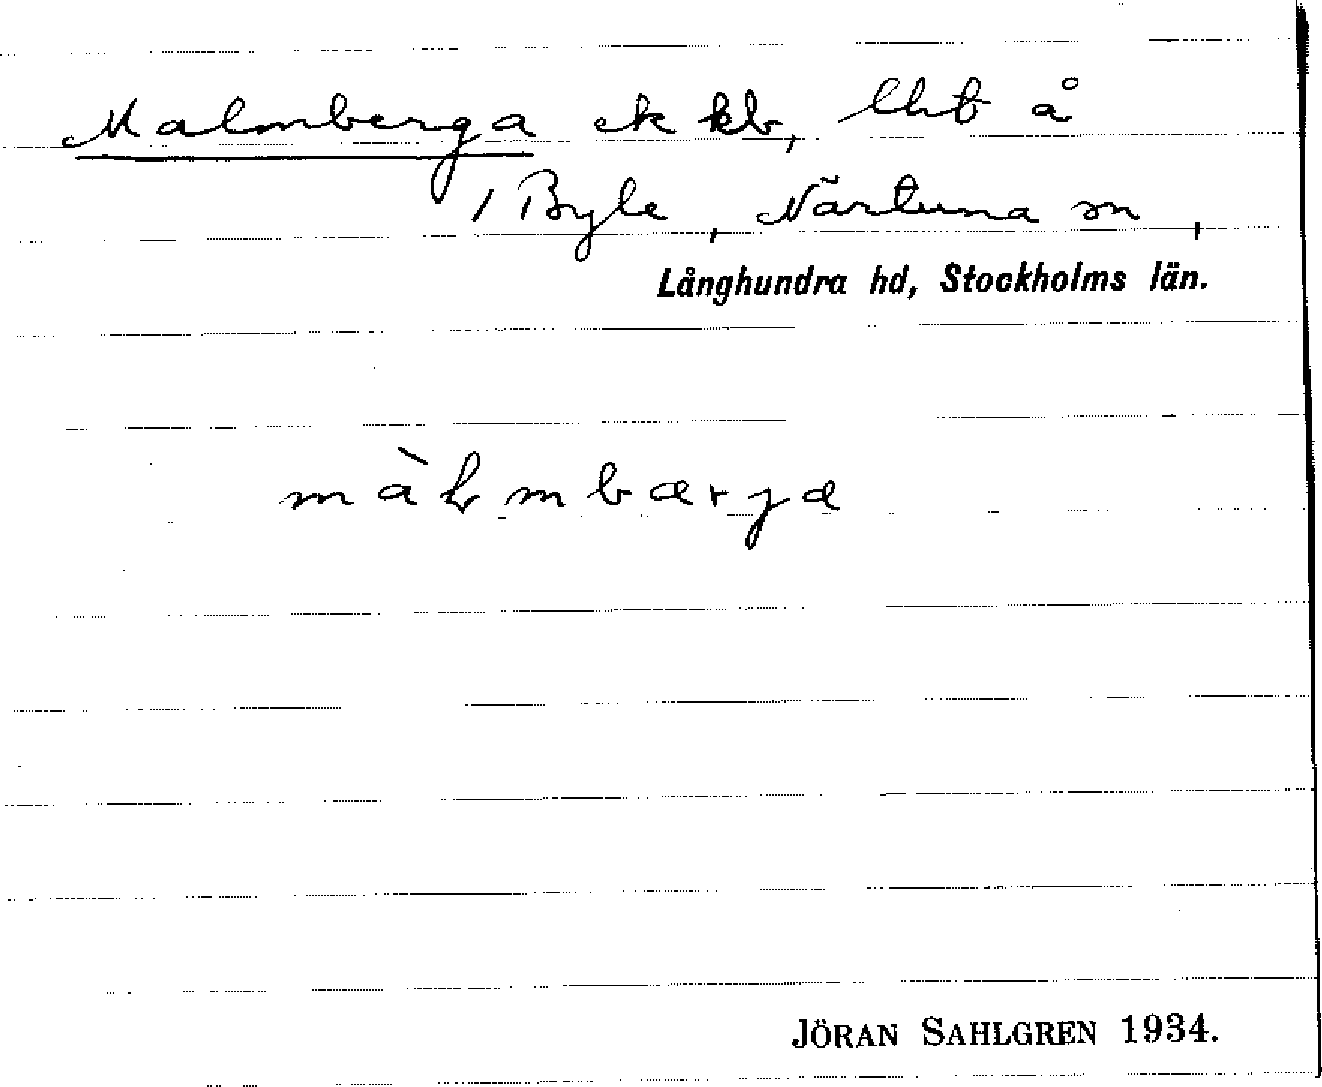 Malmberga ek kb, lht å
/ Byle, Närtuna sn,
Långhundra hd, Stockholms län.
màlmbærga
JÖRAN SAHLGREN 1934.